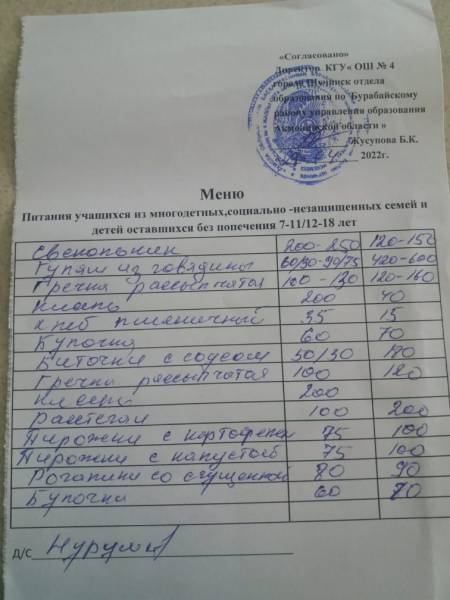 «Согласовано»
Директор КГУ« ОШ № 4
города Щучинск отдела
образования по Бурабайскому
району управления образования
Акмолинской области »
Жусупова Б.К.
2022г.
Меню
Питания учащихся из многодетных,социально -незащищенных семей и
детей оставшихся без попечения 7-11/12-18 лет
200-250 120-150
Гуляш из говядины 60/90-90/75 420-600
Гречка рассыпчатая 100-130 120-160
Кисель 200 40
хлеб пшеничный 35 15
Булочка 60 70
Биточки с соусом 50/30 180
Гречка рассыпчатая 100 120
Кисель 200
Расстегаи 100 200
Пирожки с картофелем 75 100
Пирожки с капустой 75 100
Рогалики со сгущенкой 80 90
Булочки 60 70
д/с